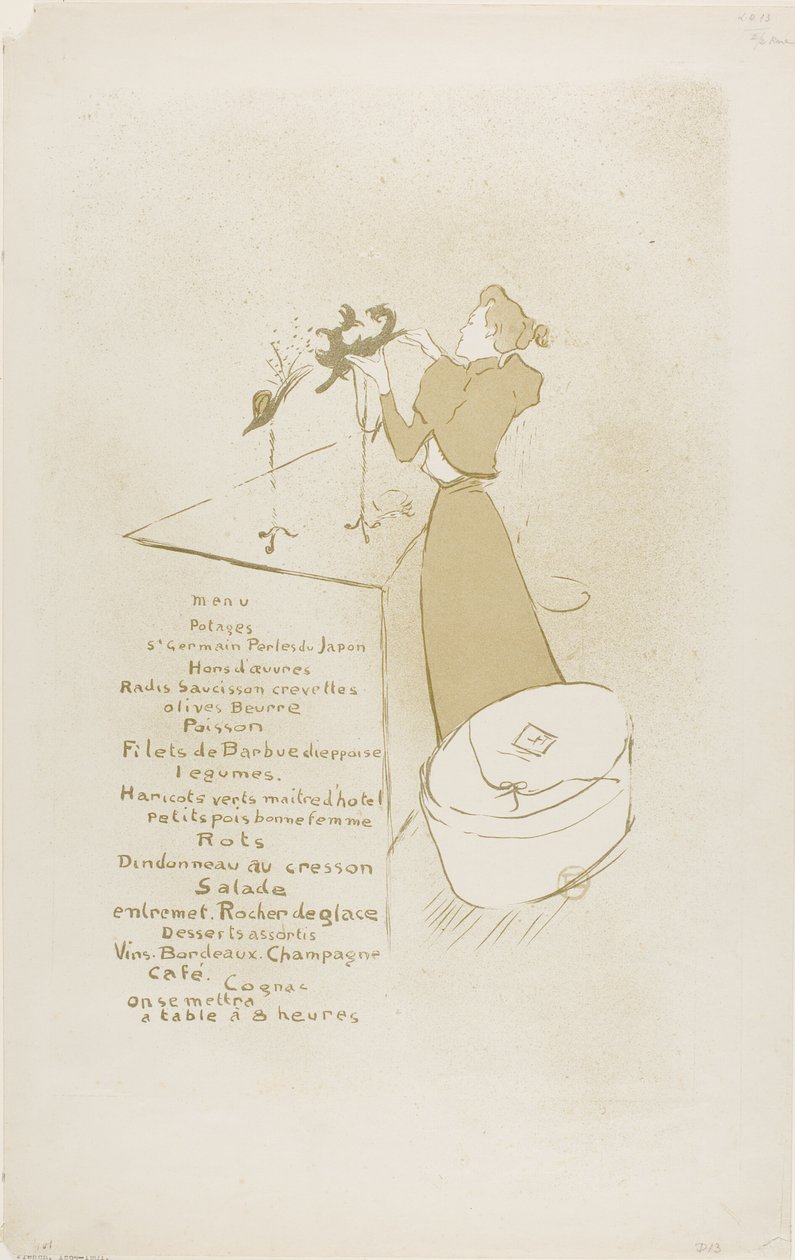 LD 13
menu
Potages
St Germain Perles du Japon
Hors d'œuvres
Radis Saucisson crevettes
olives Beurre
Poisson
Filets de Barbue dieppoise
legumes.
Haricots verts maitre d'hotel
petits pois bonne femme
Rots
Dindonneau au cresson
Salade
entremet. Rocher de glace
Desserts assortis
Vins. Bordeaux. Champagne
Café.
Cognac
on se mettra
a table à 8 heures
D13